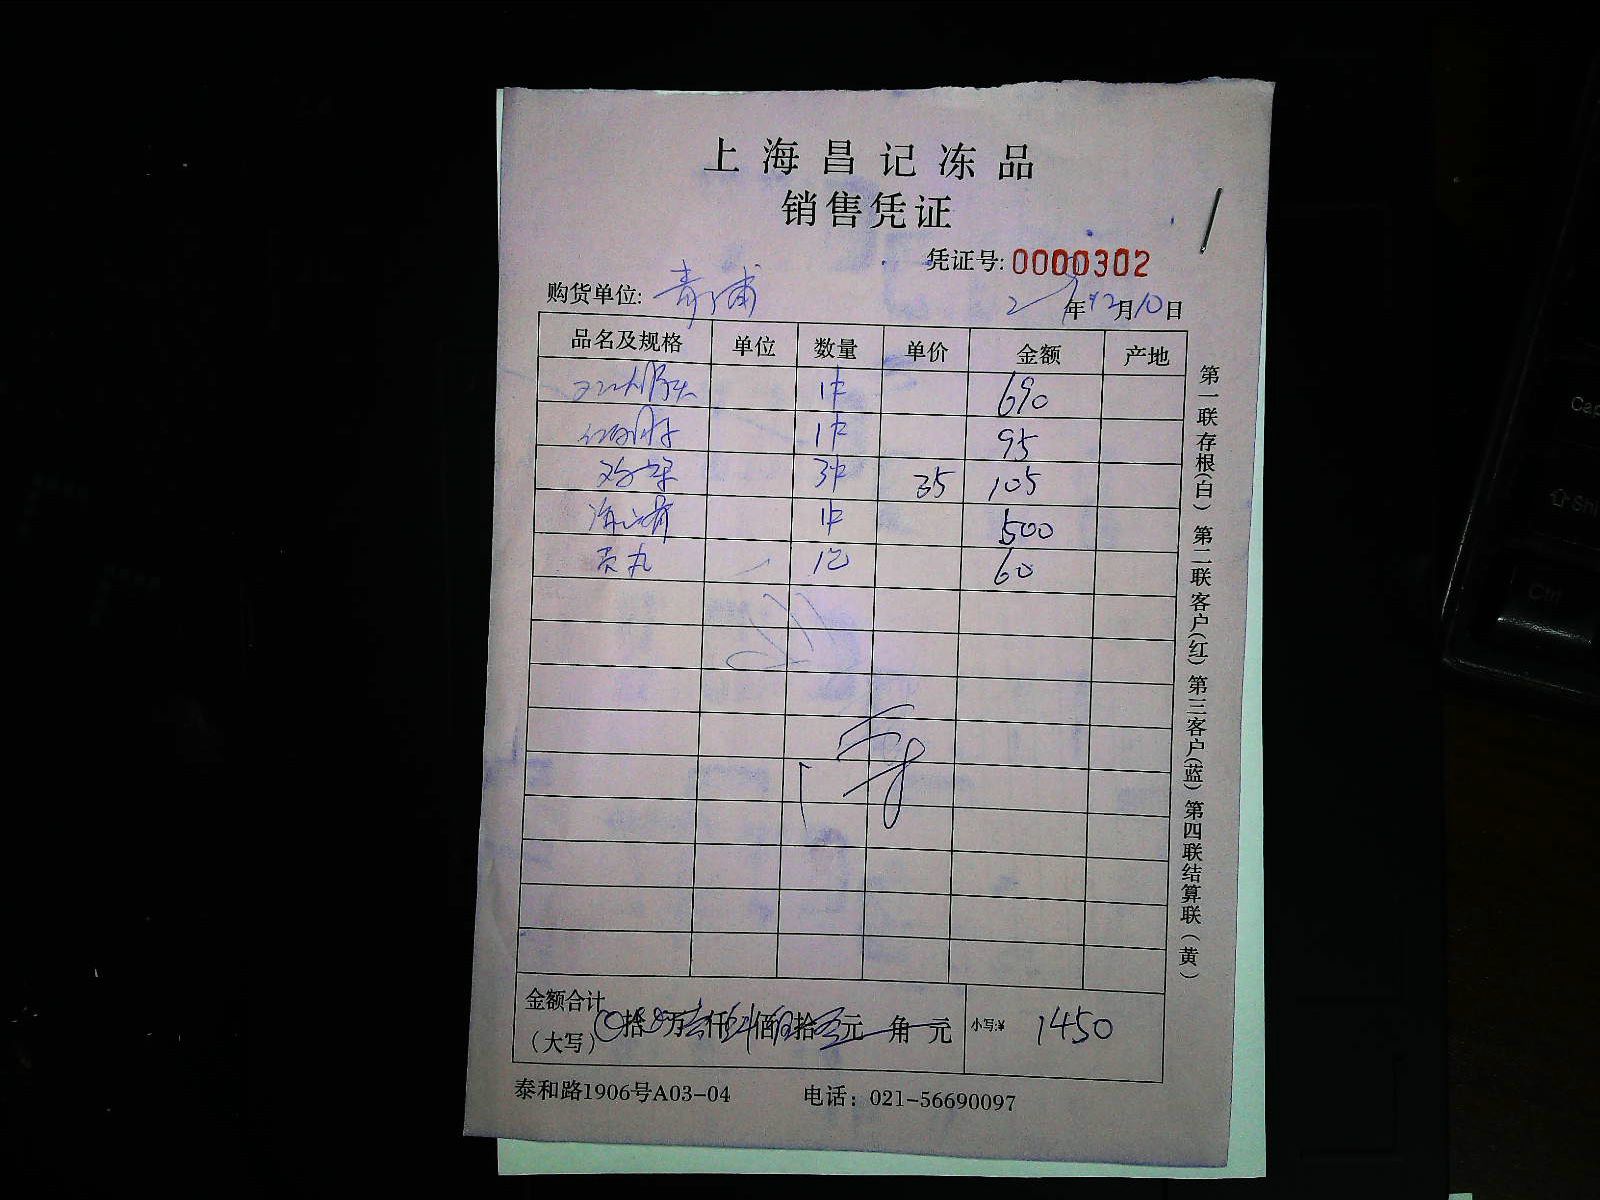 上海昌记冻品
销售凭证
凭证号: 0000302
购货单位: 青浦
年12月10日
品名及规格 单位 数量 单价 金额 产地
1件 690
1件 95
3件 35 105
1件 500
贡丸 1包 60
金额合计
(大写) 拾万仟佰拾元角元 小写:¥ 1450
泰和路1906号A03-04 电话: 021-56690097
第一联存根(白) 第二联客户(红) 第三客户(蓝) 第四联结算联(黄)